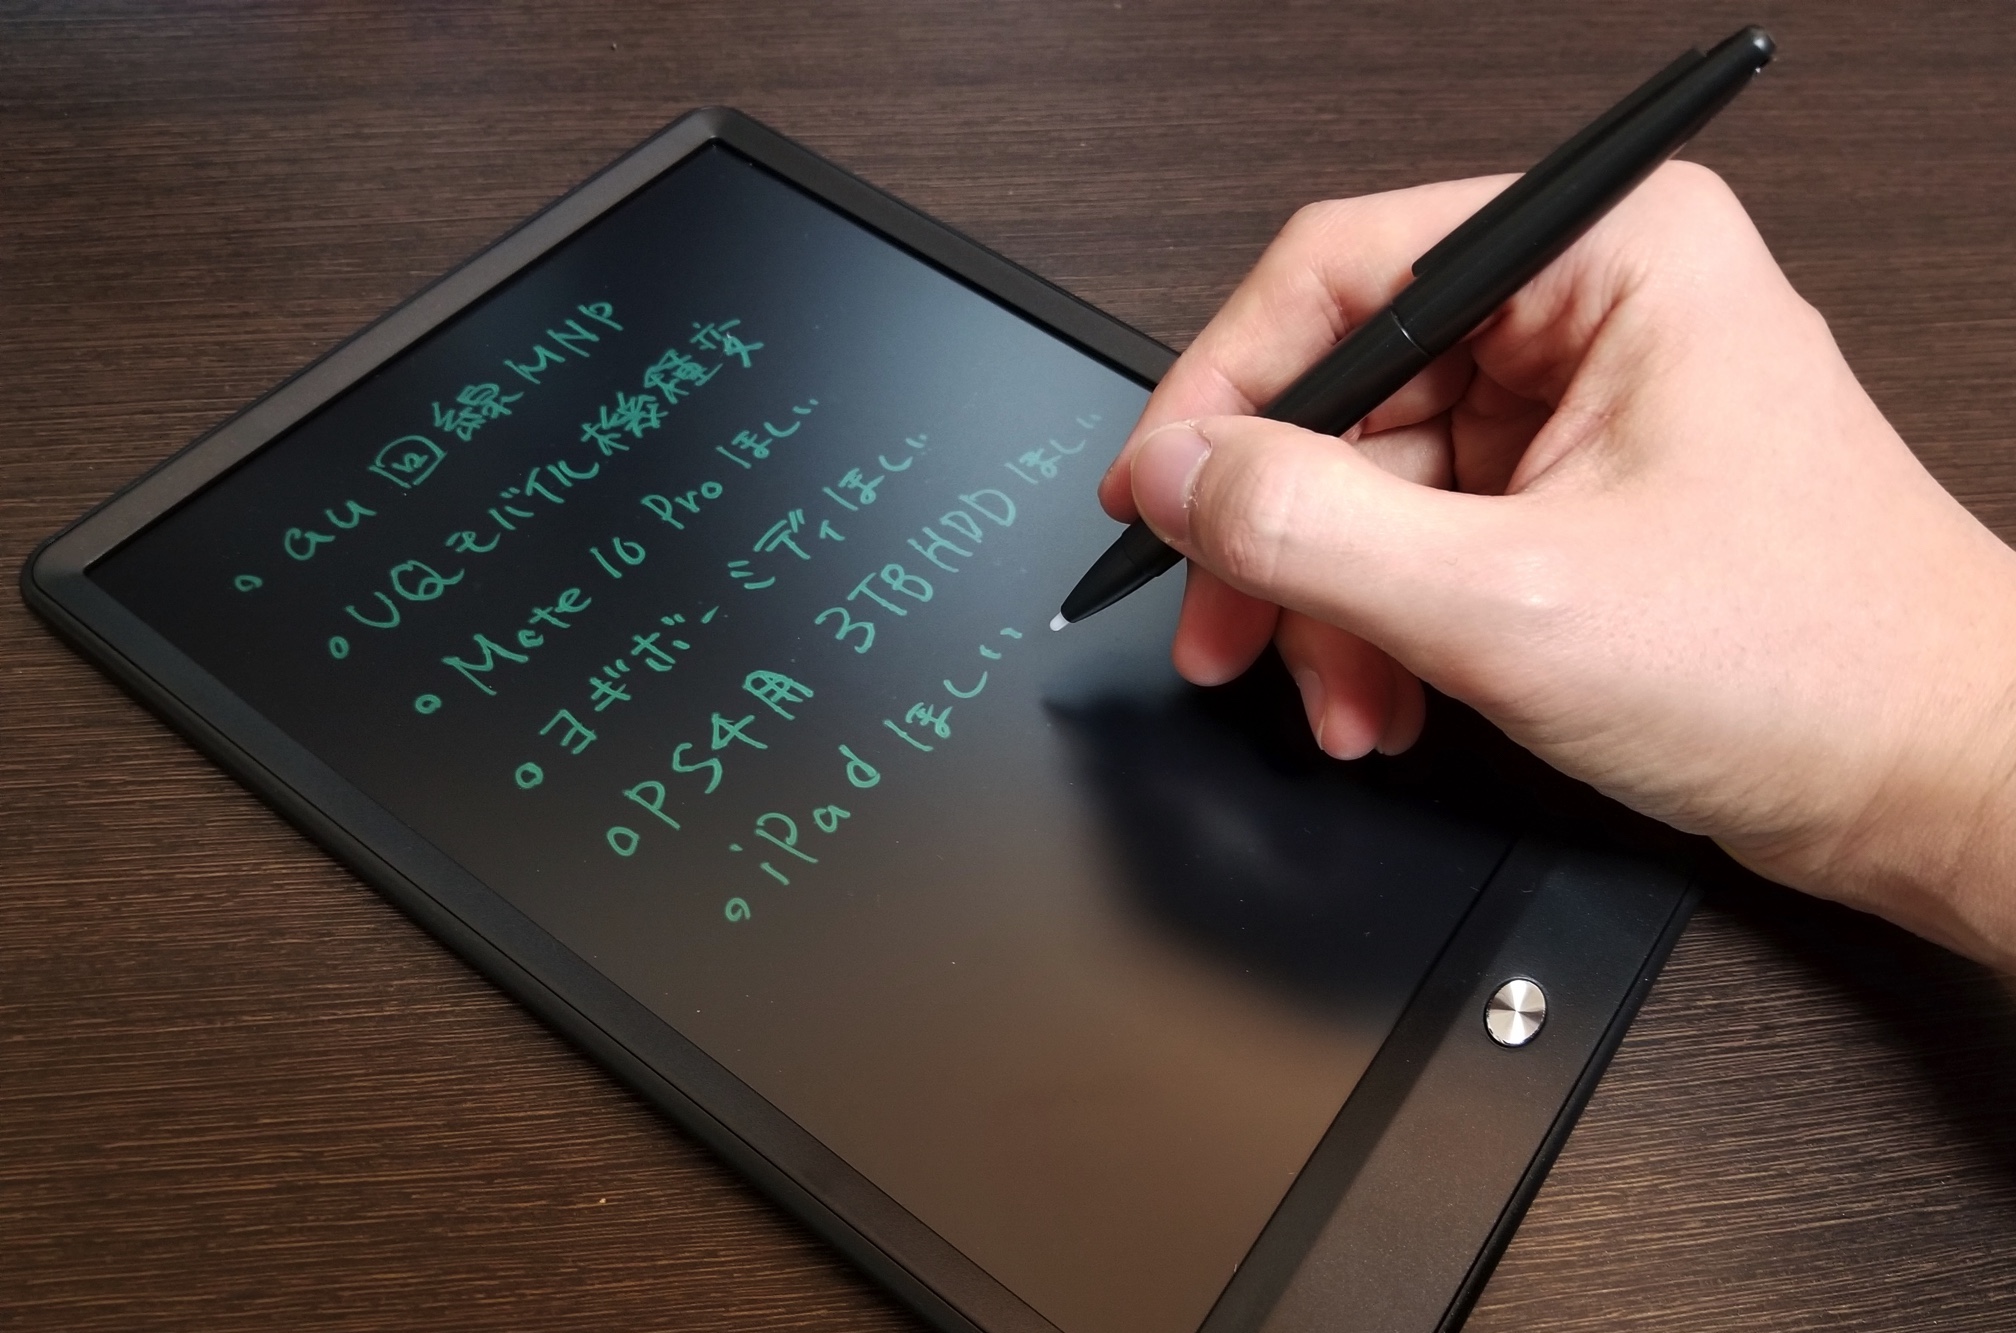 。au 回線MNP
。UQモバイル機種変
。Mate 10 Pro ほしい
。ヨギボー ミディほしい
。PS4用 3TB HDD ほしい
。iPad ほしい